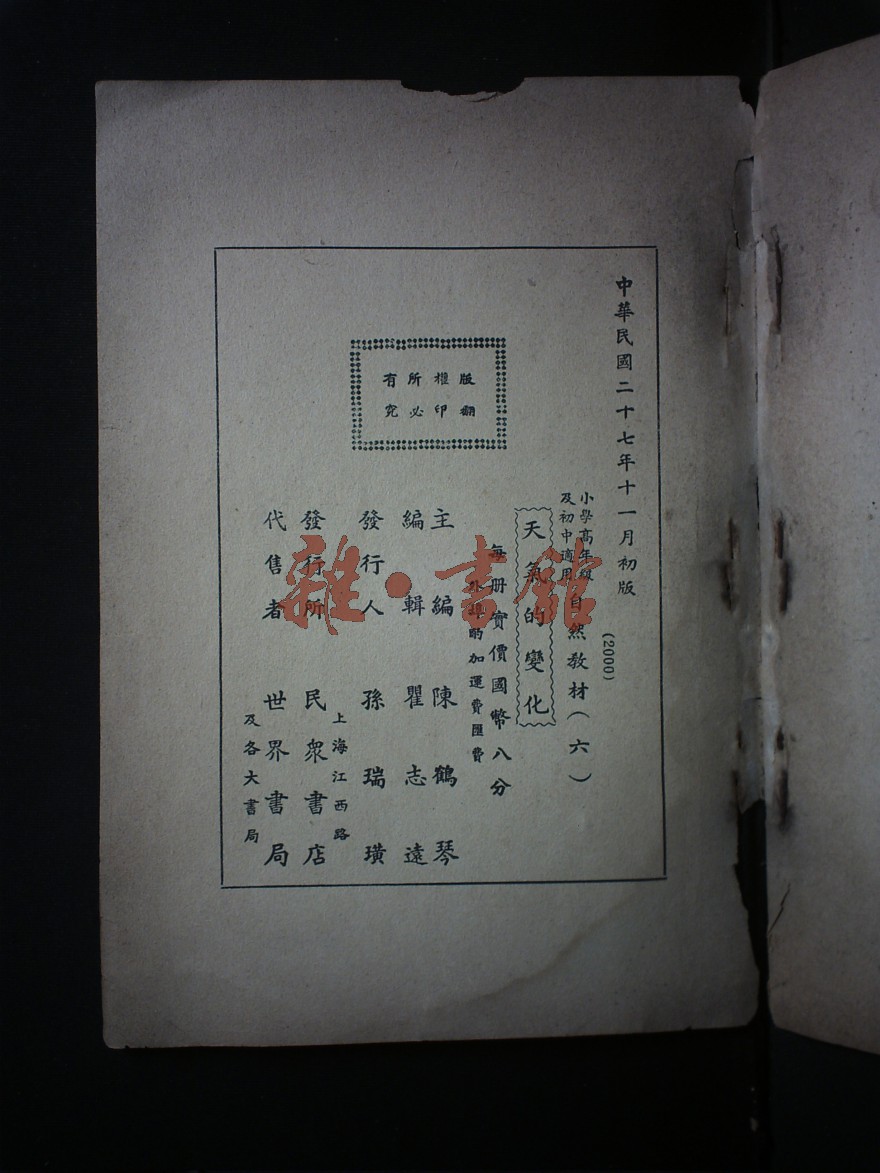 中華民國二十七年十一月初版
(2000)
小學高年級
及初中適用
自然教材(六)
天氣的變化
每册實價國幣八分
外埠酌加運費匯費
主編 陳鶴琴
編輯 瞿志遠
發行人 孫瑞璜
上海江西路
發行所 民衆書店
代售者 世界書局
及各大書局
版權所有
翻印必究
雜·書館